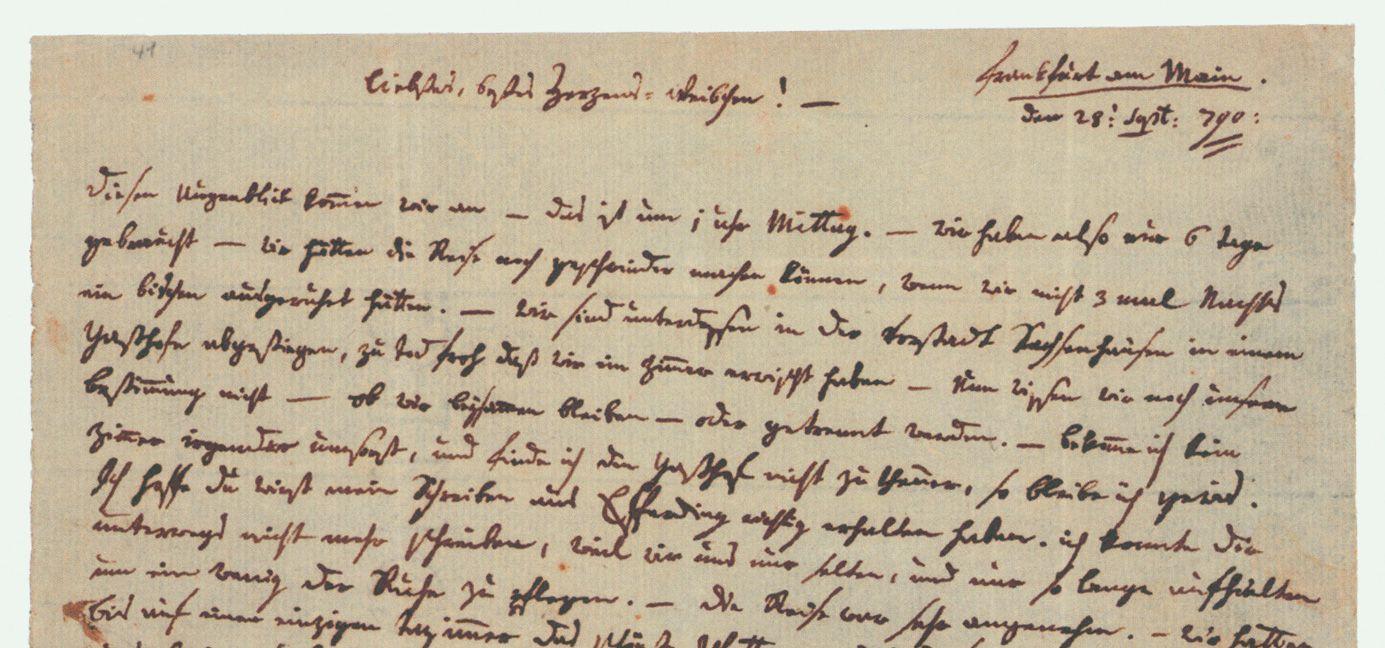 41
Frankfurt am Main.
liebstes, bestes Herzens=Weibchen! —
den 28:t Sept: 790:
diesen Augenblick kom̄en wir an — das ist um 1 uhr Mittag. — wir haben also nur 6 tage
gebraucht — wir hätten die Reise noch geschwinder machen können, wenn wir nicht 3 mal Nachts
ein bischen ausgeruhet hätten. — wir sind unterdessen in der Vorstadt Sachsenhausen in einem
Gasthofe abgestiegen, zu tod froh daß wir ein Zim̄er erwischt haben — Nun wissen wir noch unsere
bestim̄ung nicht — ob wir beysamen bleiben — oder getrennt werden. — bekom̄e ich kein
Zim̄er irgendwo umsonst, und finde ich den Gasthof nicht zu theuer, so bleibe ich gewis.
Ich hoffe du wirst mein Schreiben aus Efferding richtig erhalten haben. ich konnte dir
unterwegs nicht mehr schreiben, weil wir uns nur selten, und nur so lange aufhielten
um ein wenig der Ruhe zu pflegen. — die Reise war sehr angenehm. — wir hatten
bis auf einen einzigen tag im̄er das schönste